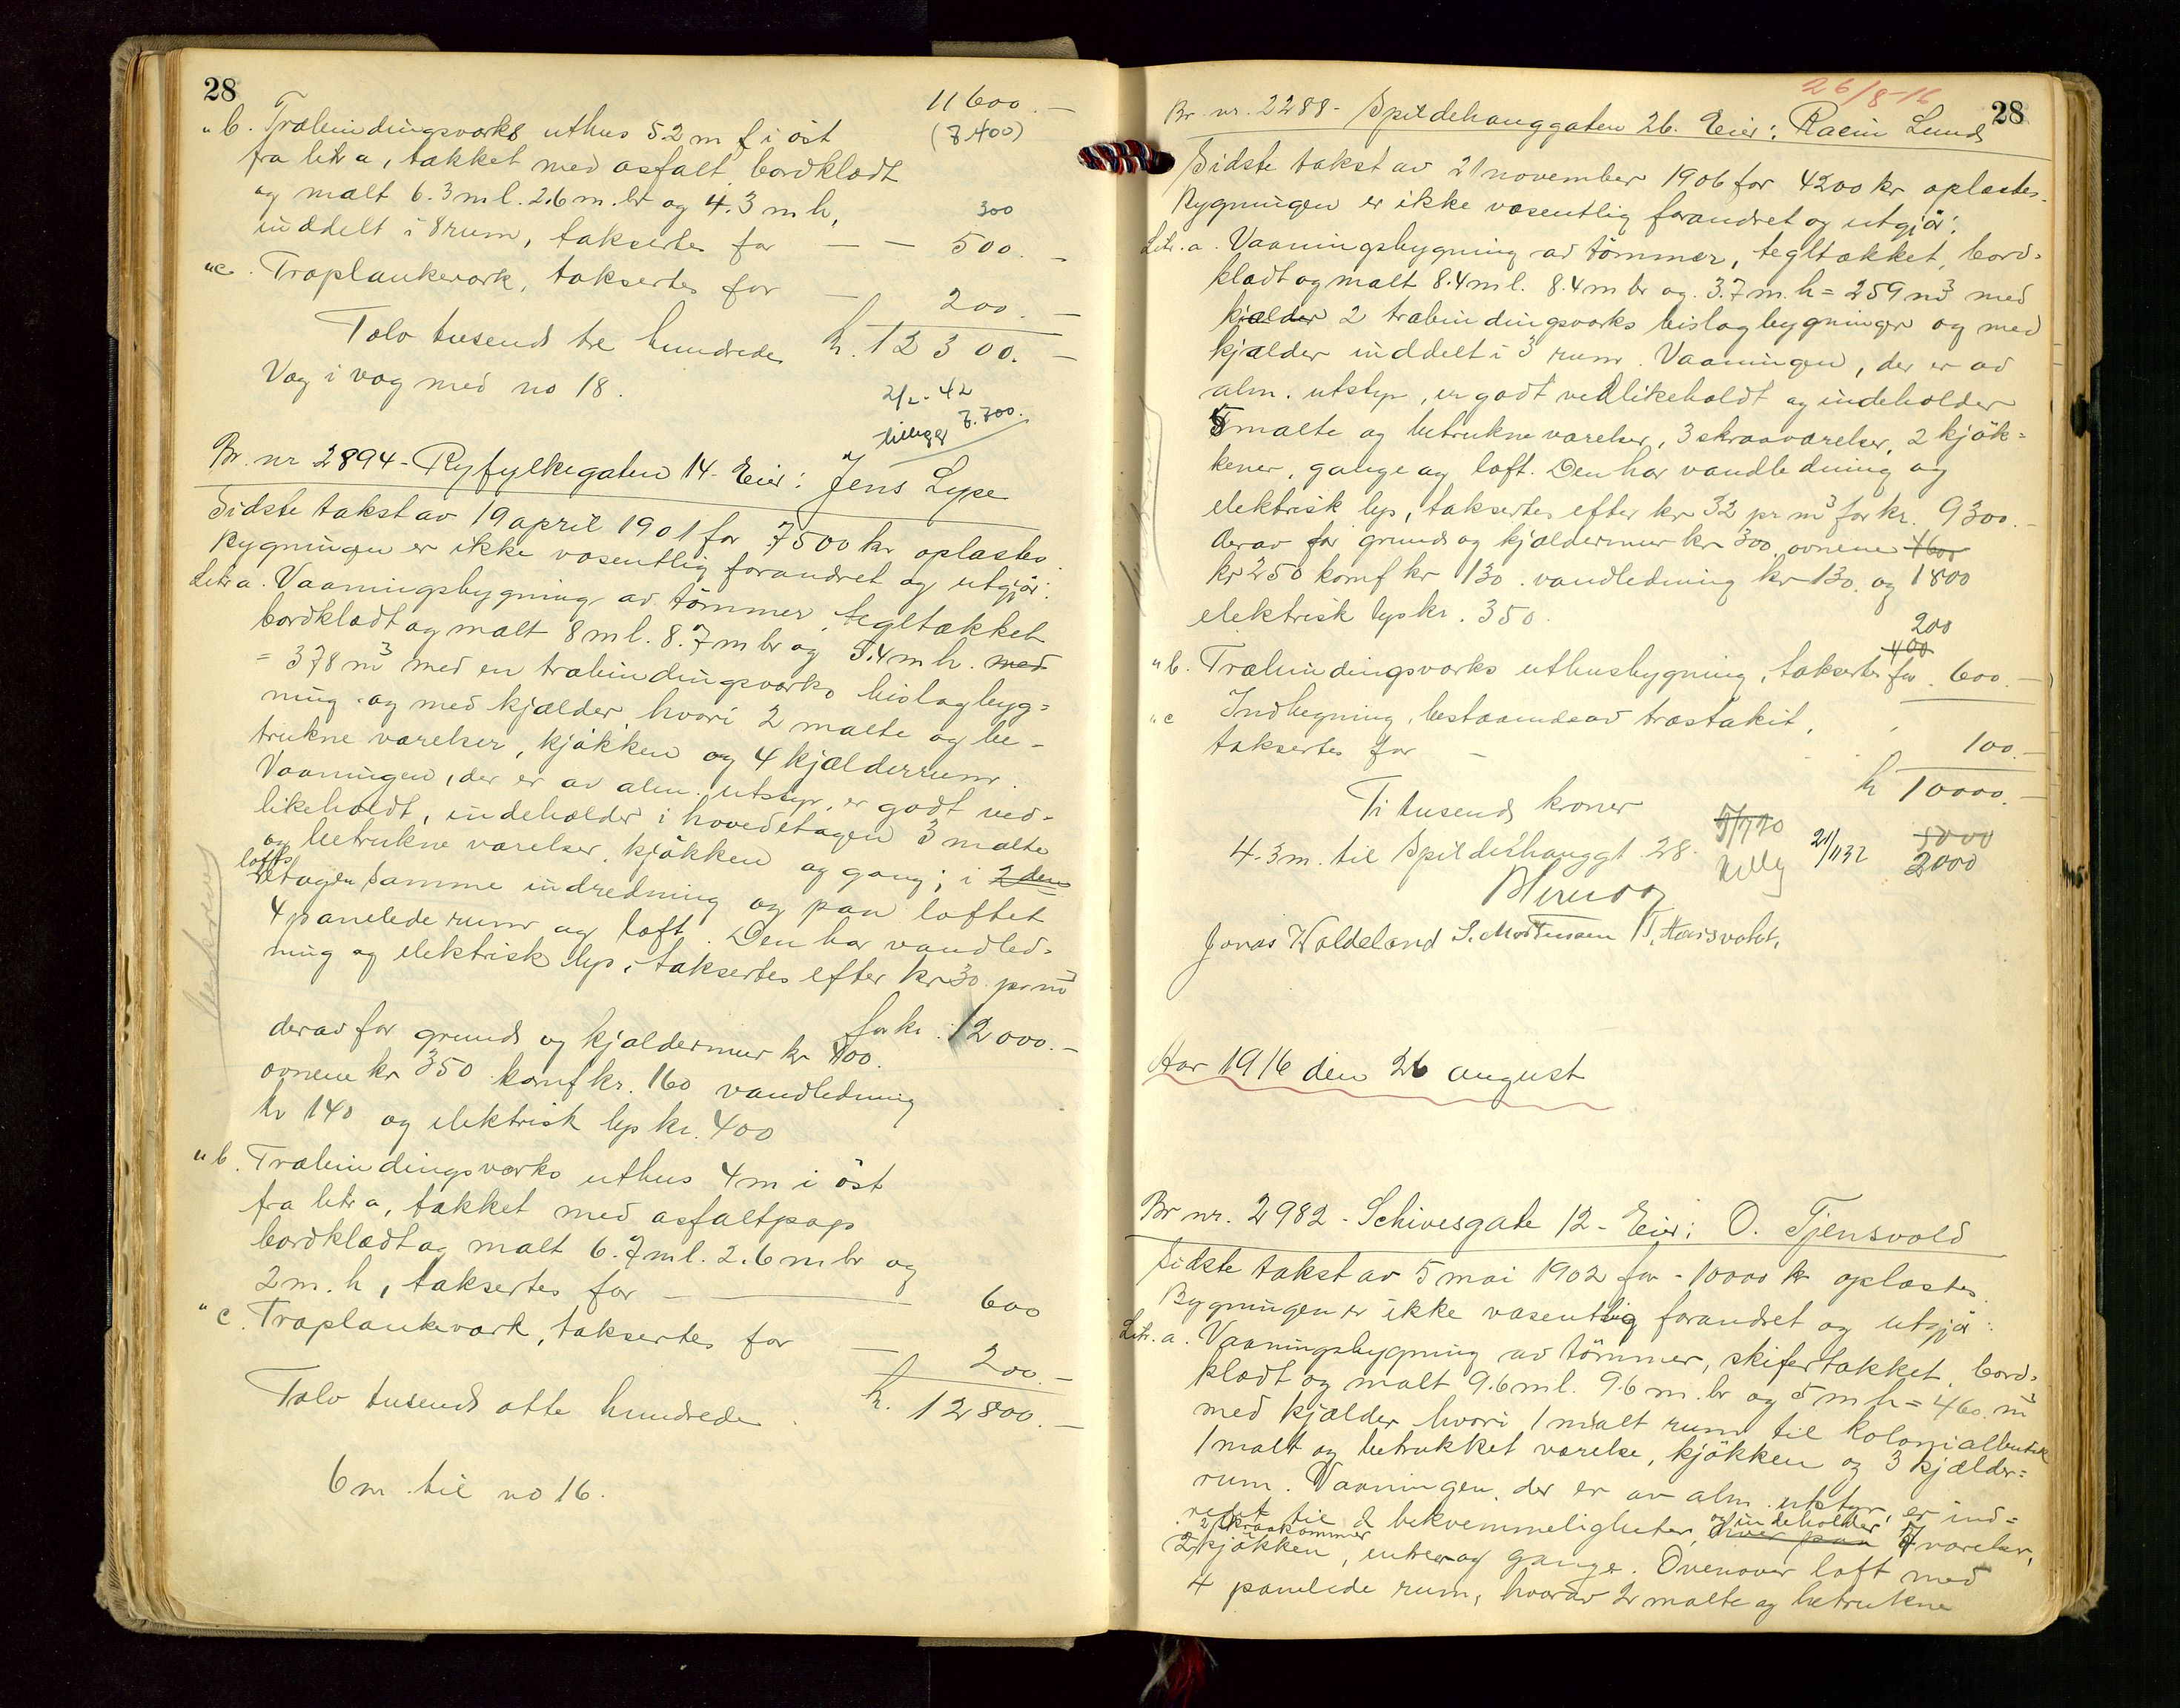 28
11600.—
(7400)
"b. Træbindingsværks uthus 5.2 m f i öst
fra litr a, tækket med asfalt, bordklædt
og malt 6.3 m l. 2.6 m. br og 4.3 m h,
300
inddelt i 8 rum, taksertes for — — 500.—
"c. Træplankeværk, taksertes for — 200.—
Tolv tusend tre hundrede kr. 12300.—
Væg i væg med no 18.
2/2-42
7.700.
Br. nr 2894 - Ryfylkegaten 14. Eier: Jens Lyse
Sidste takst av 19 april 1901 for 7500 kr oplæstes.
Bygningen er ikke væsentlig forandret og utgjör:
Litr a. Vaaningsbygning av tömmer, tegltækket
bordklædt og malt 8 m l. 8.7 m br og 5.4 m h. med
= 378 m3 med en træbindingsværks bislagbyg=
ning og med kjælder, hvori 2 malte og be-
trukne værelser, kjökken og 4 kjælderrum.
Vaaningen, der er av alm. utstyr, er godt ved-
likeholdt, indeholder i hovedetagen 3 malte
og betrukne værelser, kjökken og gang; i 2den
lofts
etagen samme indredning og paa loftet
4 panelede rum og loft. Den har vandled=
ning og elektrisk lys, taksertes efter kr 30 pr m3
for kr. 12000.—
derav for grund og kjældermur kr 400.
ovnene kr 350 komf kr. 160 vandledning
kr 140 og elektrisk lys kr. 400
"b. Træbindingsværks uthus 4 m i öst
fra litr a, tækket med asfaltpap
bordklædt og malt 6.7 m l. 2.6 m br og
2 m. h, taksertes for — 600
"c. Træplankeværk, taksertes for — 200.—
Tolv tusend otte hundrede kr. 12800.—
6 m. til no 16.
26/8-16
28
Br. nr. 2288 - Spildehauggaten 26. Eier: Racin Lund
Sidste takst av 21 november 1906 for 4200 kr oplæstes.
Bygningen er ikke væsentlig forandret og utgjör:
Litr. a. Vaaningsbygning av tömmer, tegltækket, bord=
klædt og malt 8.4 m l. 8.4 m br og 3.7 m. h = 259 m3 med
kjælder 2 træbindingsværks bislagbygninger og med
kjælder inddelt i 3 rum. Vaaningen, der er av
alm. utstyr, er godt vedlikeholdt og indeholder
5 malte og betrukne værelser, 3 skraaværelser, 2 kjök=
kener, gange og loft. Den har vandledning og
elektrisk lys, taksertes efter kr 32 pr m3 for kr. 9300.—
derav for grund og kjældermur kr 300, ovnene 4600
kr 250 komf kr 130. vandledning kr 130. og 1800
elektrisk lys kr. 350.
200
400
"b. Træbindingsværks uthusbygning, taksertes for 600.—
"c Indhegning, bestaaende av træstakit,
taksertes for — 100.—
kr 10000.—
Ti tusend kroner
4.3 m. til Spildehauggt 28. 21/1132 5000
2000
Jonas Waldeland S. Mortensen
Aar 1916 den 26 august
Br nr. 2982 - Schivesgate 12 - Eier: O. Tjensvold
Sidste takst av 5 mai 1902 for - 10000 kr oplæstes.
Bygningen er ikke væsentlig forandret og utgjör:
Litr. a. Vaaningsbygning av tömmer, skifertækket, bord=
klædt og malt 9.6 m l. 9.6 m. br og 5 m h = 460. m3
med kjælder hvori 1 malt rum til kolonialbutik
1 malt og betrukket værelse, kjökken og 3 kjælder=
rum. Vaaningen, der er av alm. utstyr, er ind=
redet til 2 bekvemmeligheter, og indeholder hver paa 7 værelser,
2 skraakammer
2 kjökken, entreer og gange. Ovenover loft med
4 panelede rum, hvorav 2 malte og betrukne